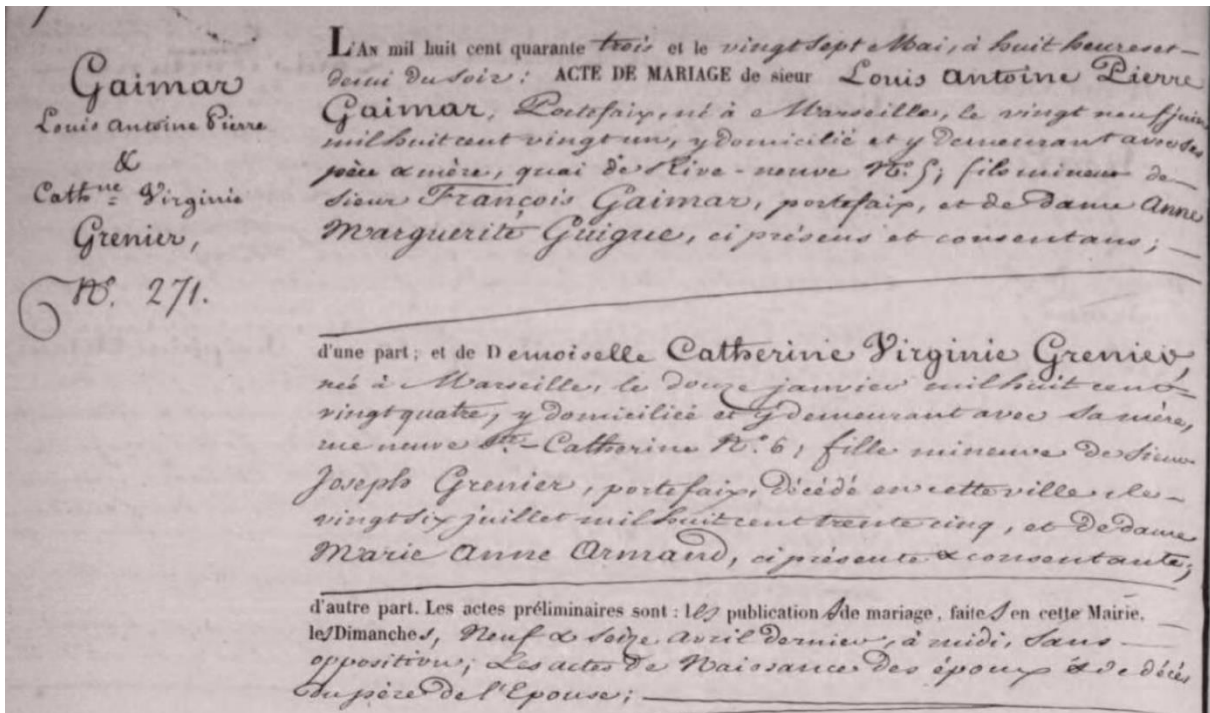 Gaimar
Louis Antoine Pierre
&
Cathne Virginie
Grenier,
N°. 271.
L'AN mil huit cent quarante trois et le vingt sept Mai, à huit heures et
demi du soir : ACTE DE MARIAGE de sieur Louis Antoine Pierre
Gaimar, Portefaix, né à Marseille, le vingt neuf juin
mil huit cent vingt un, y domicilié et y demeurant avec ses
père & mère, quai de Rive-neuve N°. 5; fils mineur de
sieur François Gaimar, portefaix, et de dame Anne
Marguerite Guigue, ci présens et consentans;
d'une part; et de Demoiselle Catherine Virginie Grenier,
née à Marseille, le douze janvier mil huit cent
vingt quatre, y domiciliée et y demeurant avec sa mère,
rue neuve Ste-Catherine N°. 6; fille mineure de sieur
Joseph Grenier, portefaix, décédé en cette ville le
vingt six juillet mil huit cent trente cinq, et de dame
Marie Anne Armand, ci présente & consentante;
d'autre part. Les actes préliminaires sont : les publications de mariage, faites en cette Mairie,
les Dimanches, Neuf & Seize Avril dernier, à midi, sans
opposition; Les actes de Naissance des époux & de décès
du père de l'Epouse;